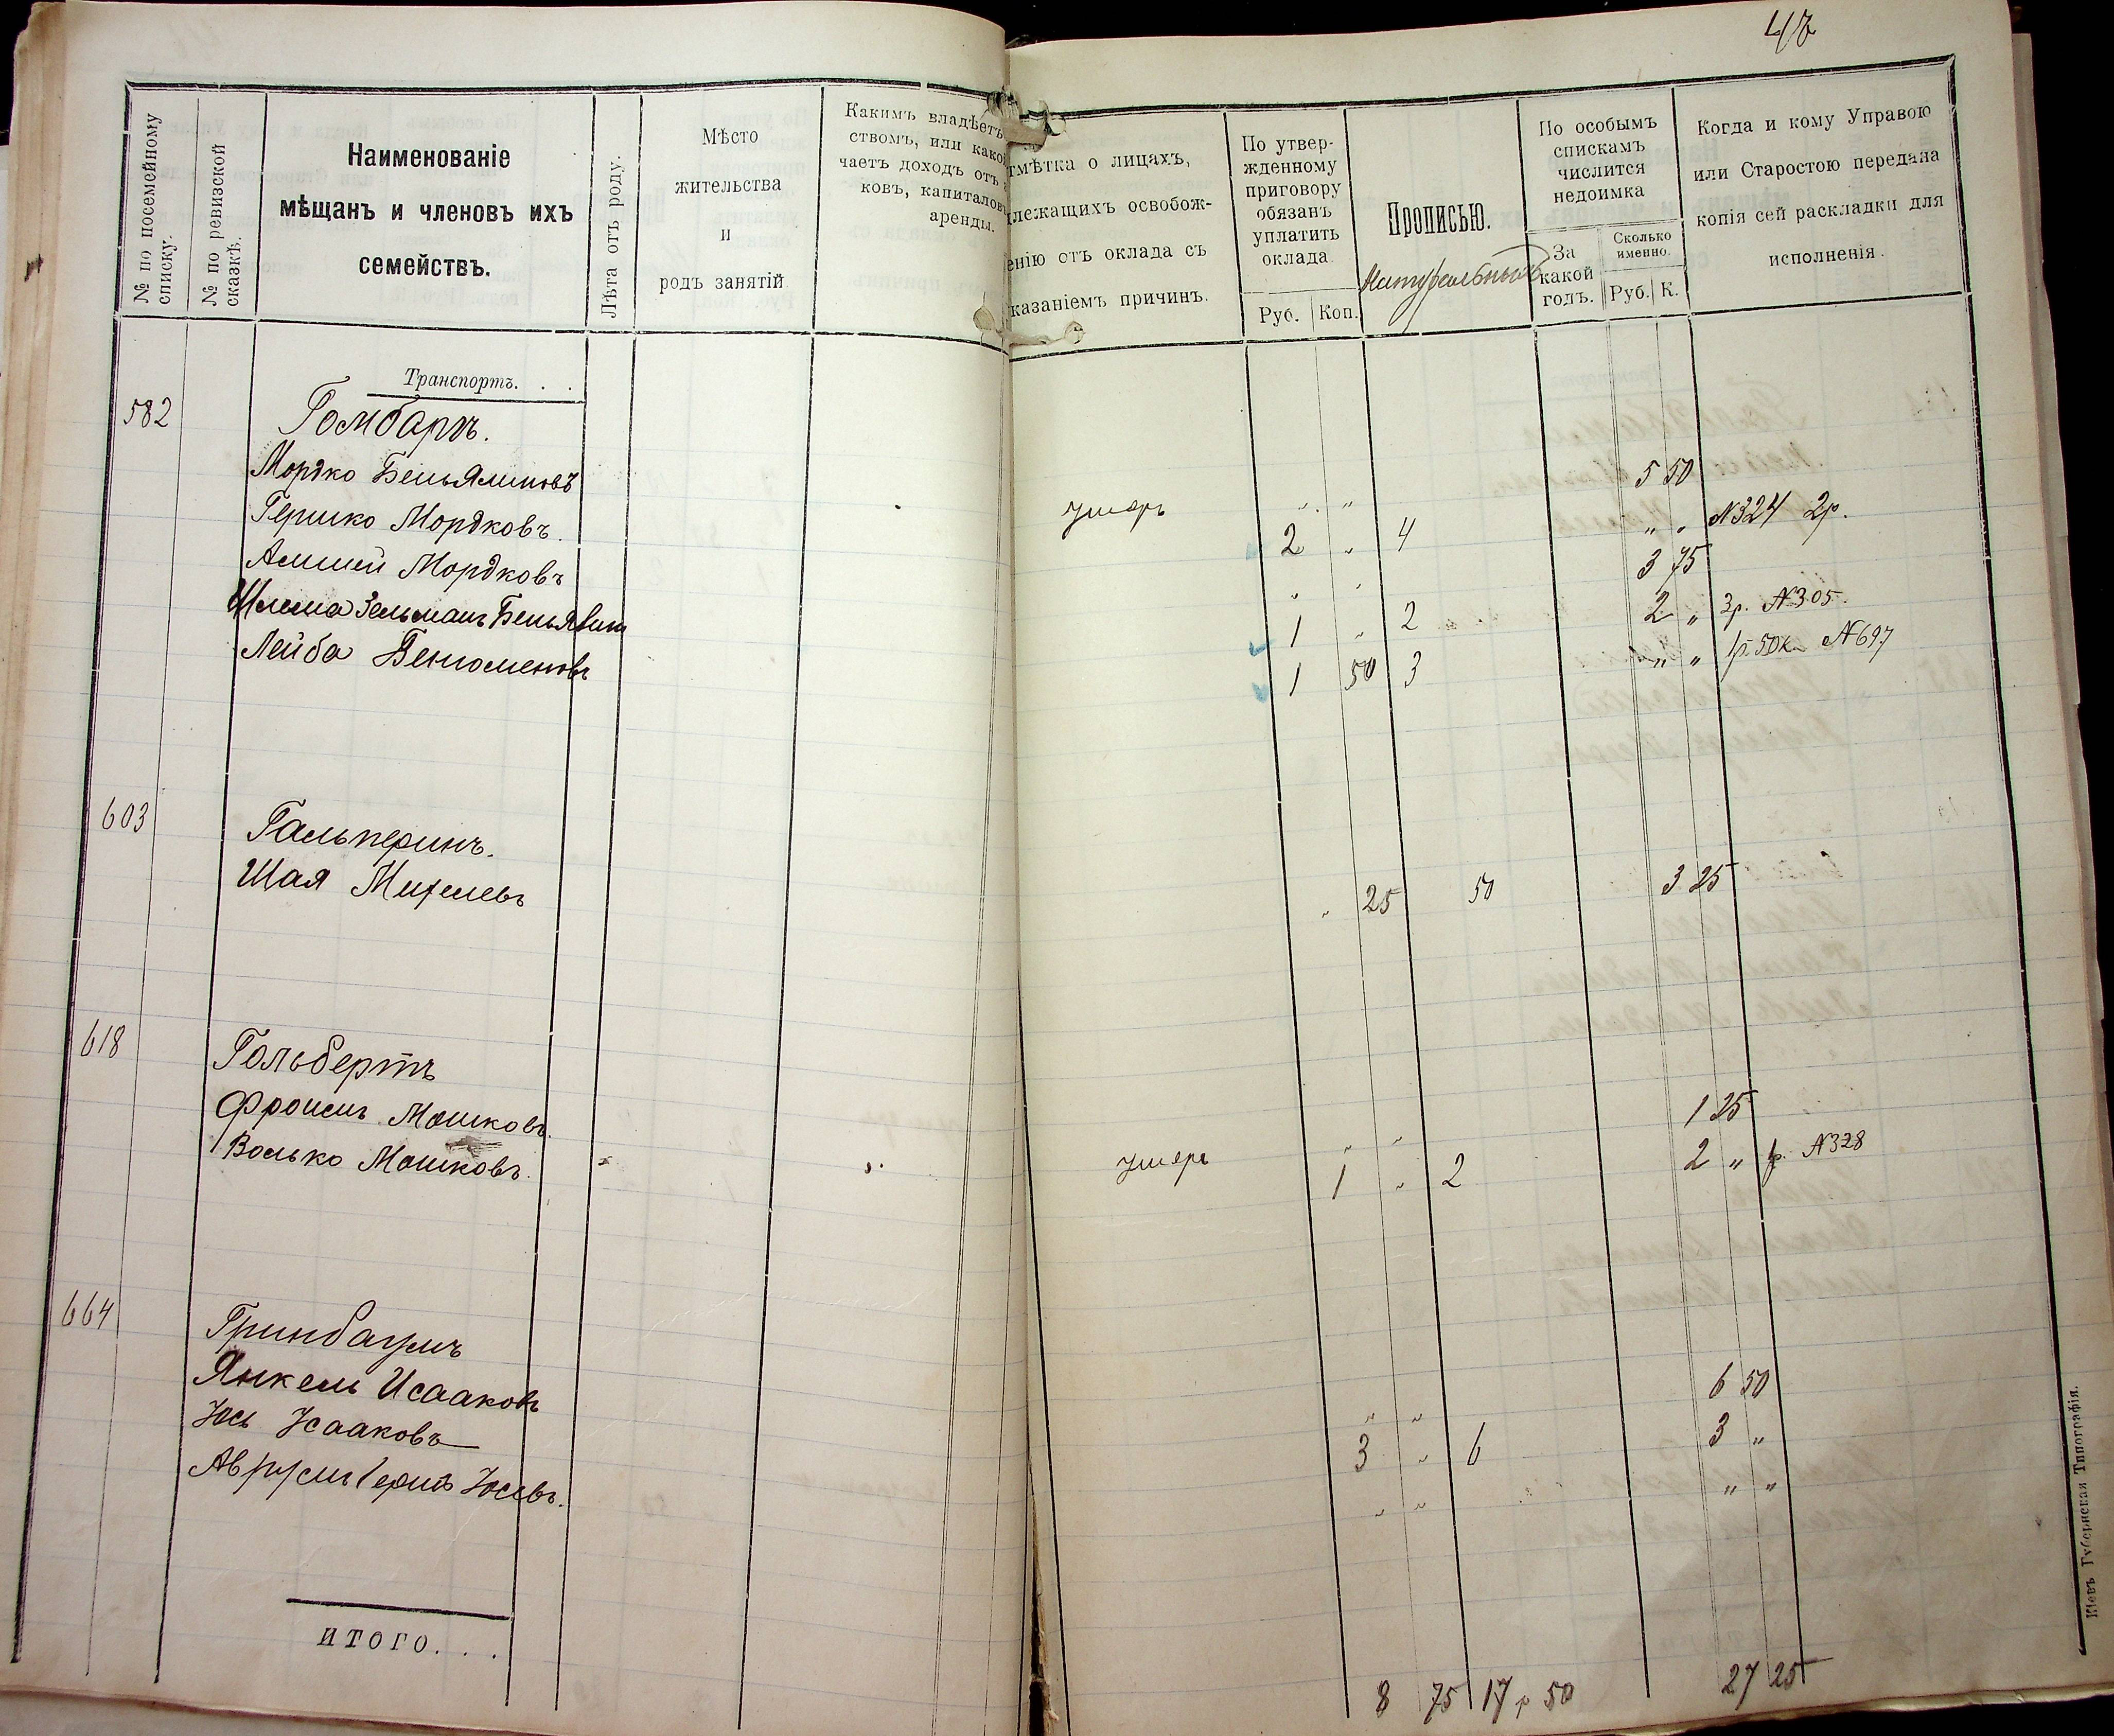 47
№ по посемейному списку.
№ по ревизской сказкѣ.
Наименованіе
мѣщанъ и членовъ ихъ
семействъ.
Лѣта отъ роду.
Мѣсто
жительства
и
родъ занятій
Какимъ владѣетъ
ствомъ, или какой
чаетъ доходъ отъ
ковъ, капиталовъ
аренды.
тмѣтка о лицахъ,
длежащихъ освобож-
енію отъ оклада съ
казаніемъ причинъ.
По утвер-
жденному
приговору
обязанъ
уплатить
оклада
Руб. Коп.
Прописью.
Натуральныхъ
По особымъ
спискамъ
числится
недоимка
За
какой
годъ.
Сколько
именно.
Руб. К.
Когда и кому Управою
или Старостою передана
копія сей раскладки для
исполненія.
Транспортъ. . .
582 Гомбаръ.
Мордко Беньяминовъ умеръ " " 5 50
Гершко Мордковъ. 2 " 4 " " №324 2р.
Мордковъ " " 3 75
Шлема Зельманъ 1 " 2 2 " 3р. №305.
Лейба 1 50 3 " " 1р. 50к №697
603 Гальперинъ.
Шая Михелевъ " 25 50 3 25
618 Гольбертъ
Фроимъ Мошковъ. умеръ " " 1 25
Волько Мошковъ. 1 " 2 2 " 1р. №328
664 Гринбаумъ
Янкель Исааковъ " " 6 50
Юсь Исааковъ 3 " 6 3 "
Аврумъ Гершъ Юсевъ. " " " "
ИТОГО. . .
8 75 17 р 50 27 25
Кіевъ Губернская Типографія.